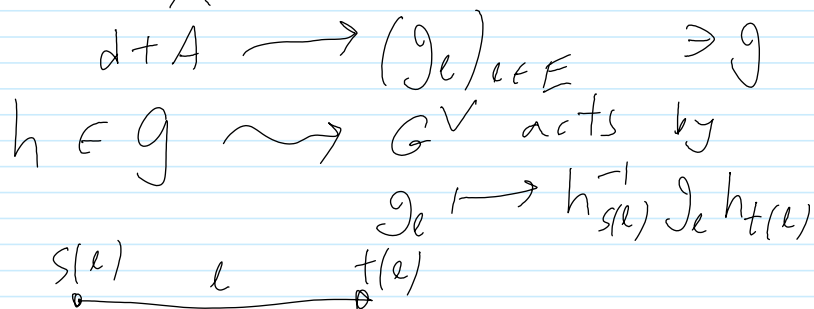 d + A ⟶ (g_e)_{e ∈ E} ∋ g
h ∈ G ⇝ G^V acts by
g_e ↦ h_{s(e)}^{-1} g_e h_{t(e)}
s(e) e t(e)